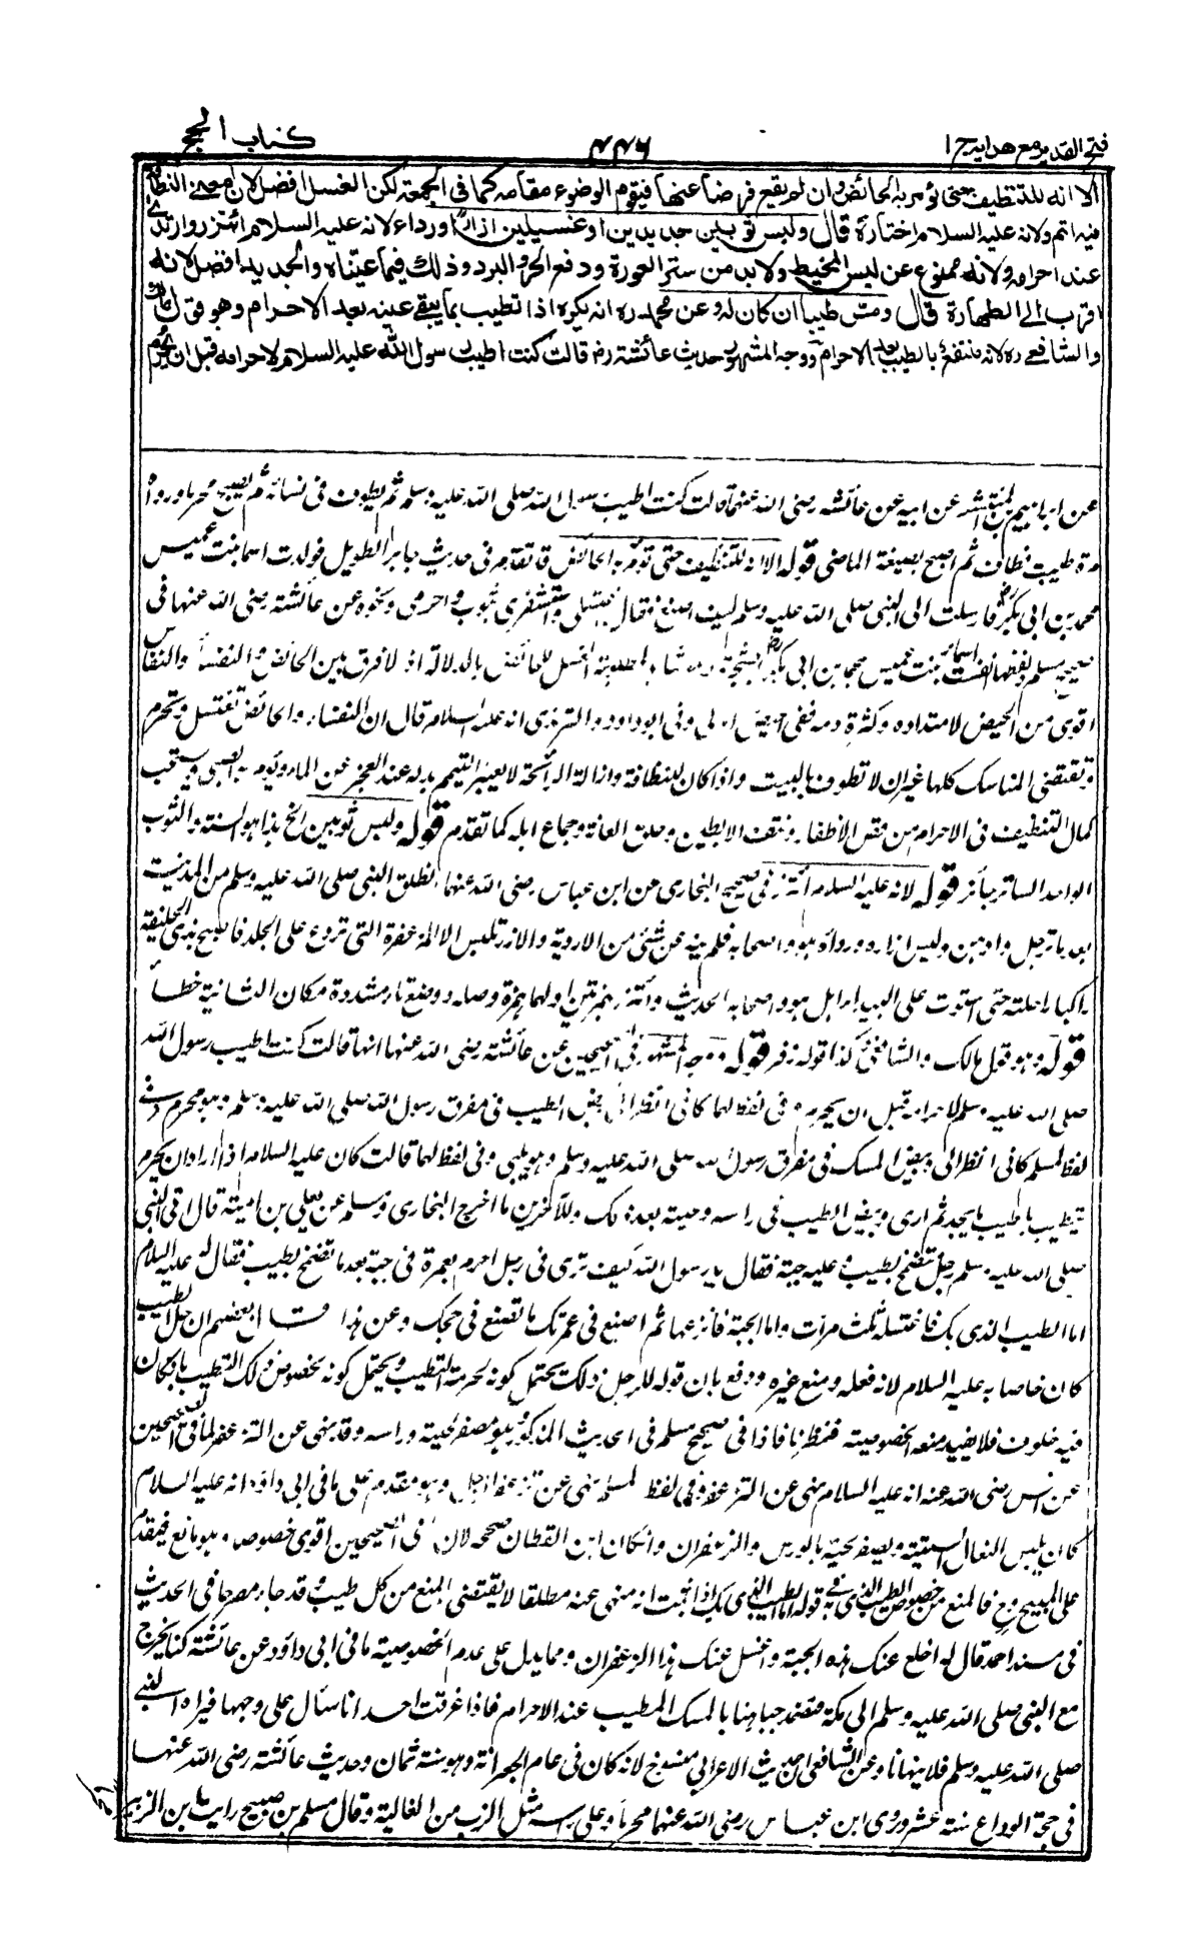 فتح القدير مع هدايه ج ١
٤٤٦
كتاب الحج
الا انه للتنظيف حتى تؤمر به الحائض وان لم يقع فرضا عنها فيقوم الوضوء مقامه كما في الجمعة لكن الغسل افضل لان معنى النظافة
فيه اتم ولانه عليه السلام اختاره قال ولبس ثوبين جديدين او غسيلين ازارا ورداء لانه عليه السلام ائتزر وارتدى
عند احرامه ولانه ممنوع عن لبس المخيط ولابد من ستر العورة ودفع الحر والبرد وذلك فيما عيناه والجديد افضل لانه
اقرب الى الطهارة قال ومس طيبا ان كان له وعن محمد ره انه يكره اذا تطيب بما يبقى عينه بعد الاحرام وهو قول مالك
والشافعي ره لانه منتفع بالطيب بعد الاحرام ووجه المشهور حديث عائشة رض قالت كنت اطيب رسول الله عليه السلام لاحرامه قبل ان يحرم
عن ابراهيم بن المنتشر عن ابيه عن عائشه رضى الله عنها قالت كنت اطيب رسول الله صلى الله عليه وسلم ثم يطوف فى نسائه ثم يصبح محرما ورواه
مرة طيبت فطاف ثم اصبح بصيغة الماضى قوله الا انه للتنظيف حتى تؤمر به الحائض قد تقدم فى حديث جابر الطويل فولدت اسما بنت عميس
محمد بن ابى بكر رض فارسلت الى النبى صلى الله عليه وسلم كيف اصنع فقال اغتسلى واستثفرى بثوب واحرمى ونحوه عن عائشة رضى الله عنها فى
صحيح مسلم ولفظها نفست اسماء بنت عميس بمحمد بن ابى بكر رض بالشجرة مطلوبية الغسل للحائض بالدلالة اذ لا فرق بين الحائض والنفساء والنفاس
اقوى من الحيض لامتداده وكثرة دمه ففى الحيض اولى وفى ابو داود والترمذى انه عليه السلام قال ان النفساء والحائض تغتسل وتحرم
وتقتضى المناسك كلها غير ان لا تطوف بالبيت واذا كان للنظافة وازالة الرائحة لا يعتبر التيمم بدله عند العجز عن الماء ويؤمر به الصبى ويستحب
كمال التنظيف فى الاحرام من قص الاظفار ونتف الابطين وحلق العانة وجماع اهله كما تقدم قوله ولبس ثوبين الخ هذا هو السنة والثوب
الواحد الساتر جائز قوله لانه عليه السلام ائتزر فى صحيح البخارى عن ابن عباس رضى الله عنهما انطلق النبى صلى الله عليه وسلم من المدينة
بعد ما ترجل وادهن ولبس ازاره ورداءه هو واصحابه فلم ينه عن شئ من الاردية والازر تلبس الا المزعفرة التى تردع على الجلد فاصبح بذى الحليفة
راكبا راحلته حتى استوت على البيداء اهل هو واصحابه الحديث وائتزر بهمزتين اولهما همزة وصل ووضع تاء مشددة مكان الثانية خطأ
قوله وهو قول مالك والشافعى وكذا قول زفر قوله ووجه المشهور فى الصحيحين عن عائشة رضى الله عنها انها قالت كنت اطيب رسول الله
صلى الله عليه وسلم لاحرامه قبل ان يحرم وفى لفظ لها كانى انظر الى وبيص الطيب فى مفرق رسول الله صلى الله عليه وسلم وهو محرم وفى
لفظ لمسلم كانى انظر الى وبيص المسك فى مفرق رسول الله صلى الله عليه وسلم وهو يلبى وفى لفظ لهما قالت كان عليه السلام اذا اراد ان يحرم
يتطيب باطيب ما يجد ثم ارى وبيص الطيب فى راسه ولحيته بعد ذلك وللآخرين ما اخرج البخارى ومسلم عن يعلى بن امية قال اتى النبى
صلى الله عليه وسلم رجل متضمخ بطيب وعليه جبة فقال يا رسول الله كيف ترى فى رجل احرم بعمرة فى جبة بعد ما تضمخ بطيب فقال له عليه السلام
اما الطيب الذى بك فاغسله ثلث مرات واما الجبة فانزعها ثم اصنع فى عمرتك ما تصنع فى حجك وعن هذا قال بعضهم ان حل الطيب
كان خاصا به عليه السلام لانه فعله ومنع غيره ودفع بان قوله للرجل ذلك يحتمل كونه لحرمة التطيب ويحتمل كونه لخصوص ذلك التطيب بان كان
فيه خلوق فلا يفيد منعه الخصوصية فنظرنا فاذا فى صحيح مسلم فى الحديث المذكور وهو مصفر لحيته وراسه وقد نهى عن التزعفر لما فى الصحيحين
عن انس رضى الله عنه انه عليه السلام نهى عن التزعفر وفى لفظ لمسلم نهى عن تزعفر الرجل وهو مقدم على ما فى ابى داود انه عليه السلام
كان يلبس النعال السبتية ويصفر لحيته بالورس والزعفران وان كان ابن القطان صححه لان ما فى الصحيحين اقوى خصوصا وهو مانع فيقدم
على المبيح وح فالمنع من خصوص الطيب الذى به فى قوله اما الطيب الذى بك اذا ثبت انه منهى عنه مطلقا لا يقتضى المنع من كل طيب وقد جاء مصرحا فى الحديث
فى مسند احمد قال له اخلع عنك هذه الجبة واغسل عنك هذا الزعفران ومما يدل على عدم الخصوصية ما فى ابى داود عن عائشة كنا نخرج
مع النبى صلى الله عليه وسلم الى مكة فنضمد جباهنا بالمسك المطيب عند الاحرام فاذا عرقت احدانا سأل على وجهها فيراه النبى
صلى الله عليه وسلم فلا ينهانا وعن الشافعى ان حديث الاعرابى منسوخ لانه كان فى عام الجعرانة وهو سنة ثمان وحديث عائشة رضى الله عنها
فى حجة الوداع سنة عشر وروى ابن عباس رضى الله عنهما محرما وعلى راسه مثل الرب من الغالية وقال مسلم بن صبيح رايت ابن الزبير